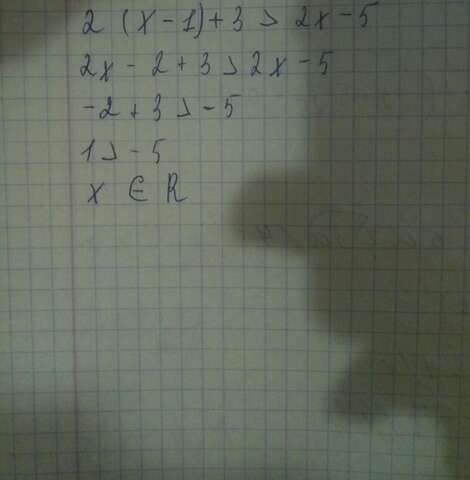 2 (x - 1) + 3 > 2x - 5
2x - 2 + 3 > 2x - 5
-2 + 3 > -5
1 > -5
x ∈ R